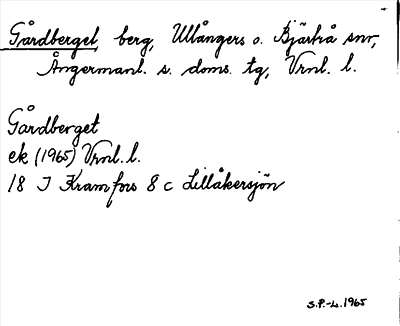 Gårdberget berg, Ullångers o. Bjärtrå snr,
Ångermanl. s. doms. tg, Vrnl. l.
Gårdberget
ek (1965) Vrnl. l.
18 J Kramfors 8 c Lillåkersjön
S.P.-L. 1965